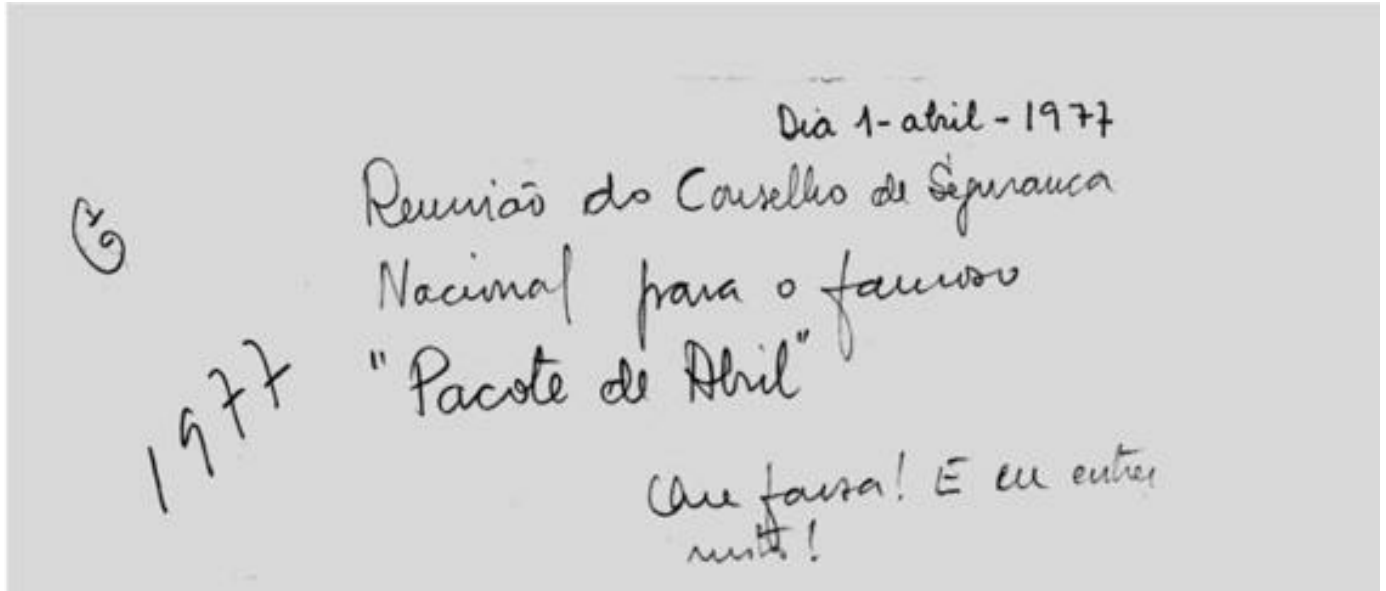 Dia 1-abril-1977
Reunião do Conselho de Segurança
Nacional para o famoso
"Pacote de Abril"
1977
Que farsa! E eu entrei
nisto!